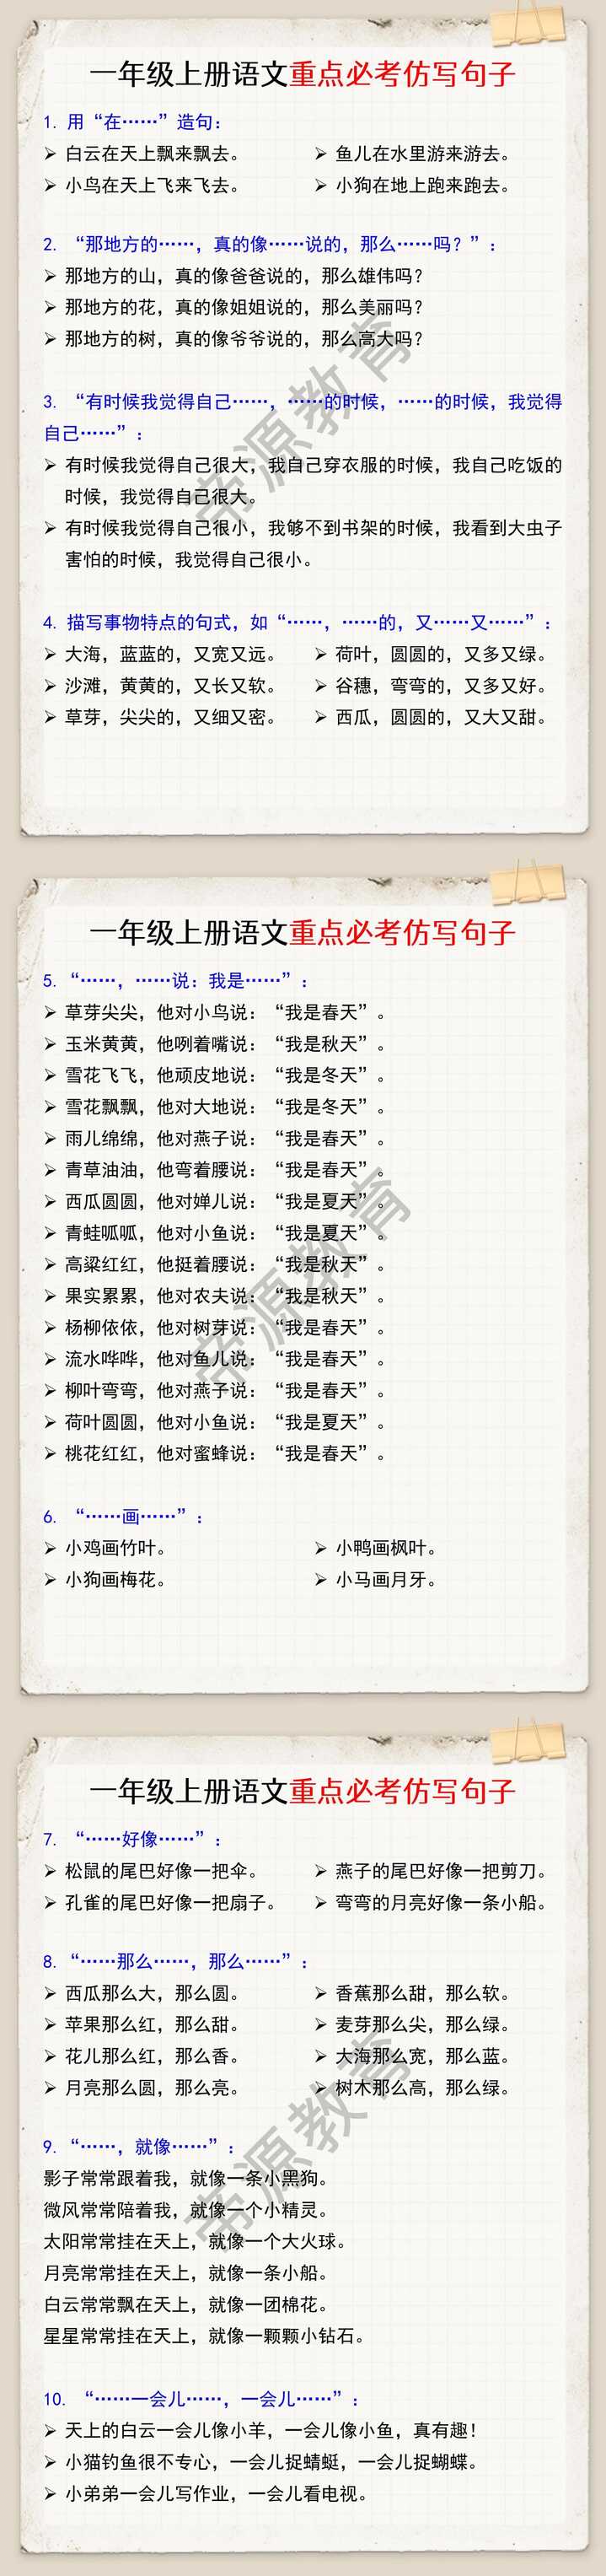 一年级上册语文重点必考仿写句子
1. 用“在……”造句：
➢ 白云在天上飘来飘去。 ➢ 鱼儿在水里游来游去。
➢ 小鸟在天上飞来飞去。 ➢ 小狗在地上跑来跑去。
2. “那地方的……，真的像……说的，那么……吗？”：
➢ 那地方的山，真的像爸爸说的，那么雄伟吗？
➢ 那地方的花，真的像姐姐说的，那么美丽吗？
➢ 那地方的树，真的像爷爷说的，那么高大吗？
3. “有时候我觉得自己……，……的时候，……的时候，我觉得
自己……”：
➢ 有时候我觉得自己很大，我自己穿衣服的时候，我自己吃饭的
时候，我觉得自己很大。
➢ 有时候我觉得自己很小，我够不到书架的时候，我看到大虫子
害怕的时候，我觉得自己很小。
4. 描写事物特点的句式，如“……，……的，又……又……”：
➢ 大海，蓝蓝的，又宽又远。 ➢ 荷叶，圆圆的，又多又绿。
➢ 沙滩，黄黄的，又长又软。 ➢ 谷穗，弯弯的，又多又好。
➢ 草芽，尖尖的，又细又密。 ➢ 西瓜，圆圆的，又大又甜。
帝源教育
一年级上册语文重点必考仿写句子
5. “……，……说：我是……”：
➢ 草芽尖尖，他对小鸟说：“我是春天”。
➢ 玉米黄黄，他咧着嘴说：“我是秋天”。
➢ 雪花飞飞，他顽皮地说：“我是冬天”。
➢ 雪花飘飘，他对大地说：“我是冬天”。
➢ 雨儿绵绵，他对燕子说：“我是春天”。
➢ 青草油油，他弯着腰说：“我是春天”。
➢ 西瓜圆圆，他对婵儿说：“我是夏天”。
➢ 青蛙呱呱，他对小鱼说：“我是夏天”。
➢ 高粱红红，他挺着腰说：“我是秋天”。
➢ 果实累累，他对农夫说：“我是秋天”。
➢ 杨柳依依，他对树芽说：“我是春天”。
➢ 流水哗哗，他对鱼儿说：“我是春天”。
➢ 柳叶弯弯，他对燕子说：“我是春天”。
➢ 荷叶圆圆，他对小鱼说：“我是夏天”。
➢ 桃花红红，他对蜜蜂说：“我是春天”。
6. “……画……”：
➢ 小鸡画竹叶。 ➢ 小鸭画枫叶。
➢ 小狗画梅花。 ➢ 小马画月牙。
帝源教育
一年级上册语文重点必考仿写句子
7. “……好像……”：
➢ 松鼠的尾巴好像一把伞。 ➢ 燕子的尾巴好像一把剪刀。
➢ 孔雀的尾巴好像一把扇子。 ➢ 弯弯的月亮好像一条小船。
8. “……那么……，那么……”：
➢ 西瓜那么大，那么圆。 ➢ 香蕉那么甜，那么软。
➢ 苹果那么红，那么甜。 ➢ 麦芽那么尖，那么绿。
➢ 花儿那么红，那么香。 ➢ 大海那么宽，那么蓝。
➢ 月亮那么圆，那么亮。 ➢ 树木那么高，那么绿。
9. “……，就像……”：
影子常常跟着我，就像一条小黑狗。
微风常常陪着我，就像一个小精灵。
太阳常常挂在天上，就像一个大火球。
月亮常常挂在天上，就像一条小船。
白云常常飘在天上，就像一团棉花。
星星常常挂在天上，就像一颗颗小钻石。
10. “……一会儿……，一会儿……”：
➢ 天上的白云一会儿像小羊，一会儿像小鱼，真有趣！
➢ 小猫钓鱼很不专心，一会儿捉蜻蜓，一会儿捉蝴蝶。
➢ 小弟弟一会儿写作业，一会儿看电视。
帝源教育